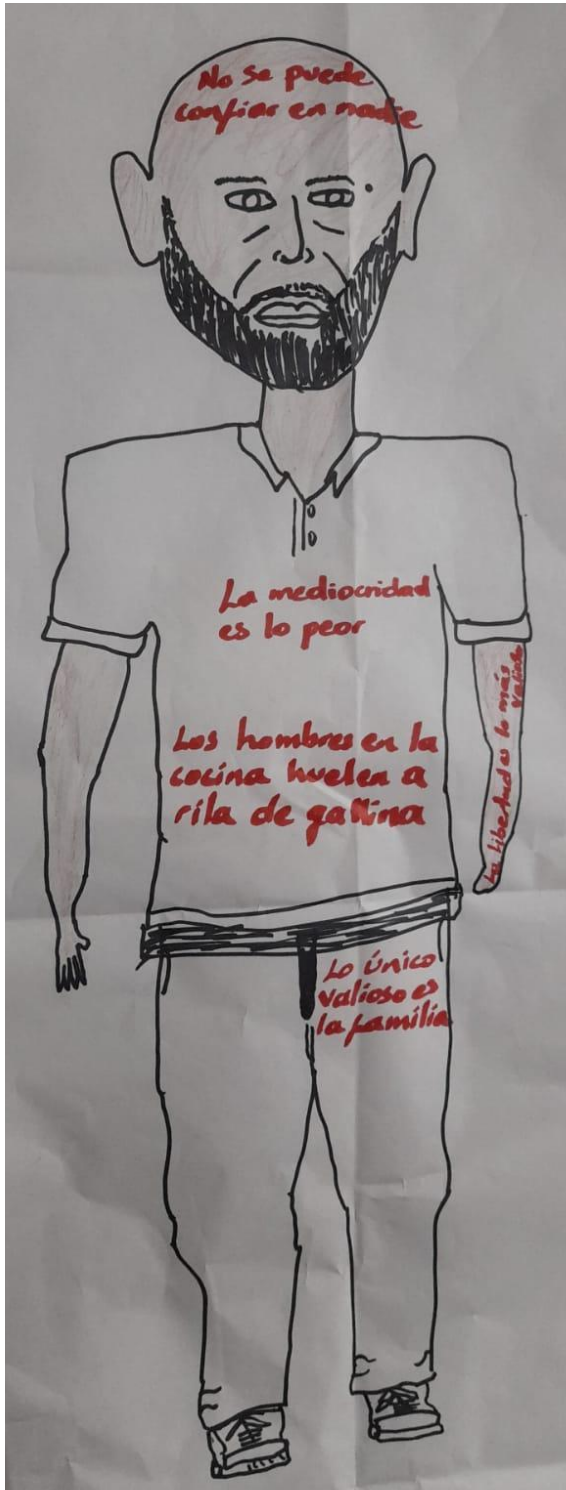 No se puede
confiar en nadie
La mediocridad
es lo peor
Los hombres en la
cocina huelen a
rila de gallina
La libertad es lo más
valioso
Lo único
valioso es
la familia